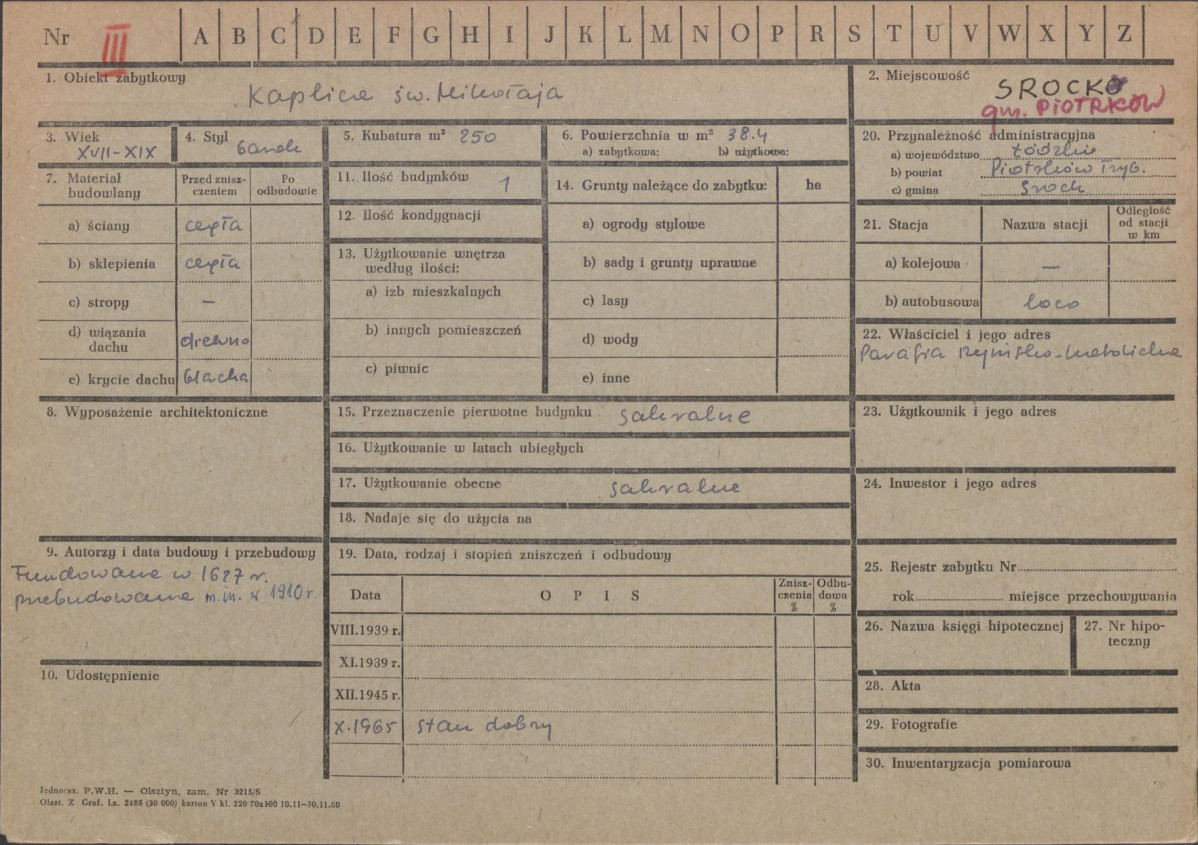 Nr III A B C D E F G H I J K L M N O P R S T U V W X Y Z
1. Obiekt zabytkowy
Kaplica św. Mikołaja
2. Miejscowość
SROCKO
gm. PIOTRKÓW
3. Wiek
XVII-XIX
4. Styl
barok
5. Kubatura m³ 250
6. Powierzchnia w m² 38.4
a) zabytkowa: b) użytkowa:
7. Materiał budowlany
Przed zniszczeniem
Po odbudowie
a) ściany cegła
b) sklepienia cegła
c) stropy –
d) wiązania dachu drewno
e) krycie dachu blacha
8. Wyposażenie architektoniczne
9. Autorzy i data budowy i przebudowy
Fundowana w 16?7 r.
przebudowana m.in. w 1910 r.
10. Udostępnienie
11. Ilość budynków 1
12. Ilość kondygnacji
13. Użytkowanie wnętrza
według ilości:
a) izb mieszkalnych
b) innych pomieszczeń
c) piwnic
14. Grunty należące do zabytku: ha
a) ogrody stylowe
b) sady i grunty uprawne
c) lasy
d) wody
e) inne
15. Przeznaczenie pierwotne budynku sakralne
16. Użytkowanie w latach ubiegłych
17. Użytkowanie obecne sakralne
18. Nadaje się do użycia na
19. Data, rodzaj i stopień zniszczeń i odbudowy
Data OPIS Zniszczenia % Odbudowa %
VIII.1939 r.
XI.1939 r.
XII.1945 r.
X.1965 stan dobry
20. Przynależność administracyjna
a) województwo Łódzkie
b) powiat Piotrków Tryb.
c) gmina Srock
21. Stacja Nazwa stacji Odległość od stacji w km
a) kolejowa –
b) autobusowa loco
22. Właściciel i jego adres
Parafia rzymsko-katolicka
23. Użytkownik i jego adres
24. Inwestor i jego adres
25. Rejestr zabytku Nr
rok miejsce przechowywania
26. Nazwa księgi hipotecznej
27. Nr hipoteczny
28. Akta
29. Fotografie
30. Inwentaryzacja pomiarowa
Jednoraz. P.W.H. — Olsztyn, zam. Nr 3215/5
Olszt. Z. Graf. Lz. 2485 (30 000) karton V kl. 220 70x100 10.11—30.11.60